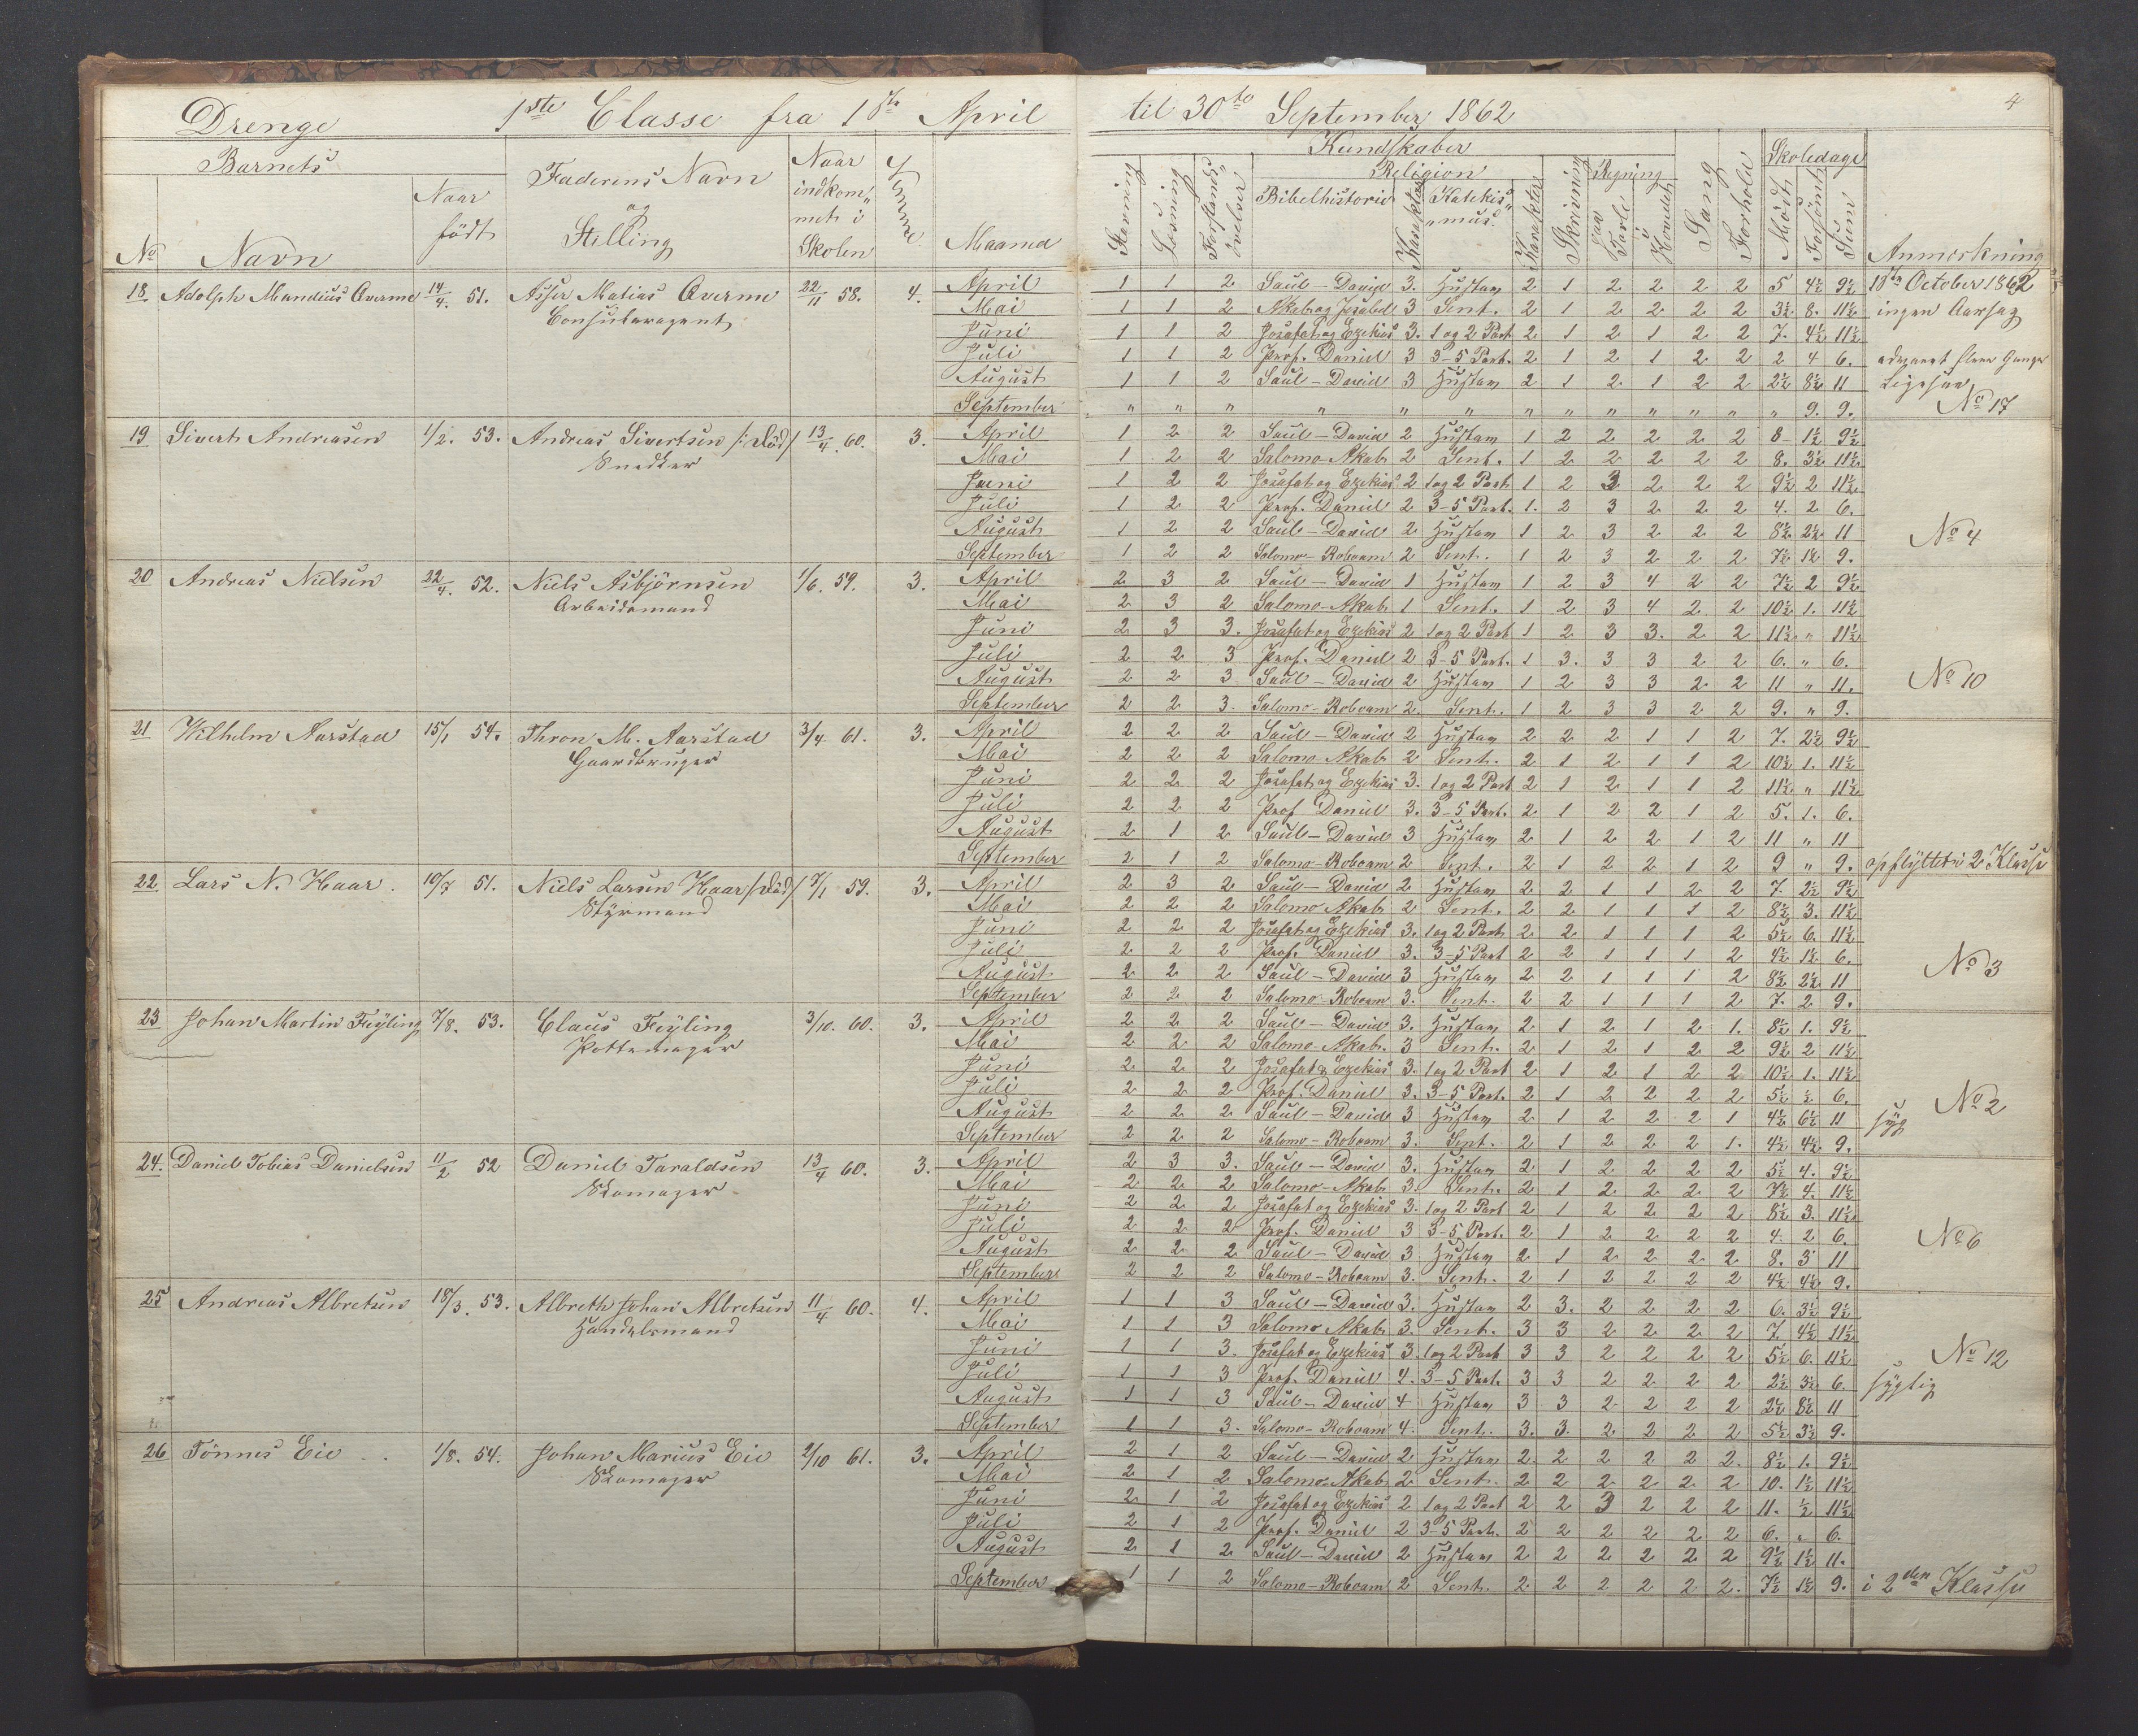 Drenge 1ste Classe fra 1ste April til 30te September 1862 4
Barnets
No Navn
Naar født
Faderens Navn og Stilling
Naar indkom„ met i Skolen
Evne
Maaned
Kundskaber
Stavning Læsning Forstands„ øvelser
Religion
Bibelhistorie Karakter Katekis„ „mus. Karakter
Skrivning
Regning
paa Tavle i Hovedet
Sang Forhold
Skoledage
Mødt Forsømt Sum
Anmerkning
18 Adolph Mandius Qverme 14/4. 51. Asser Matias Qverme 22/11 58. 4. April 1 1 2 Saul – David 3. Hustav 2 1 2 2 2 2 5 4½ 9½ 1ste October 1862
Mai 1 1 2 Akab og Jesabel 3 Sent. 2 1 2 2 2 2 3½ 8. 11½ ingen Aarsag
Juni 1 1 2 Josafat og Ezekias 3. 1 og 2 Part 2 1 2 1 2 2 7. 4½ 11½
Juli 1 1 2 Prof. Daniel 3 3–5 Part. 2 1 2 1 2 2 2 4 6. advaret flere Gange
August 1 1 2 Saul – David 3 Hustav 2 1 2 1 2 2 2½ 8½ 11 Ligesaa
September „ „ „ „ „ „ „ „ „ „ „ „ „ 9. 9. No 17
19 Sivert Andreasen 1/2. 53. Andreas Sivertsen /: Død / 13/4. 60. 3. April 1 2 2 Saul – David 2 Hustav 1 2 2 2 2 2 8 1½ 9½
Snedker
Mai 1 2 2 Salomo-Akab 2 Sent. 1 2 2 2 2 2 8. 3½ 11½
Juni 1 2 2 Josafat og Ezekias 2 1 og 2 Part 1 2 3 2 2 2 9½ 2 11½
Juli 1 2 2 Prof. Daniel 2 3–5 Part. 1. 2 3 2 2 2 4. 2 6.
August 1 2 2 Saul – David 2 Hustav 1 2 3 2 2 2 8½ 2½ 11 No 4
September 1 2 2 Salomo – Roboam 2 Sent. 1 2 3 2 2 2 7½ 1½ 9.
20 Andreas Nielsen 22/4. 52. Niels Asbjørnsen 1/6. 59. 3. April 2 3 2 Saul – David 1 Hustav 1 2 3 4 2 2 7½ 2 9½
Arbeidsmand
Mai 2 3 2 Salomo-Akab 1 Sent. 1 2 3 4 2 2 10½ 1. 11½
Juni 2 3 3. Josafat og Ezekias 2 1 og 2 Part 1 2 3 3. 2 2 11½ „ 11½
Juli 2 2 3 Prof. Daniel 2 3–5 Part. 1 3. 3 3 2 2 6. „ 6.
August 2 2 3 Saul – David 2 Hustav 1 2 3 3 2 2 11 „ 11. No 10
September 2 2 3. Salomo – Roboam 2. Sent. 1 2 3 3 2 2 9. „ 9.
21 Wilhelm Aarstad 15/1 54. Thron M. Aarstad 3/4 61. 3. April 2 2 2 Saul – David 2 Hustav 2 2 2 1 1 2 7. 2½ 9½
Gaardbruger
Mai 2 2 2 Salomo-Akab 2 Sent. 2 1 2 1 1 2 10½ 1. 11½
Juni 2 2 2 Josafat og Ezekias 3. 1 og 2 Part 2 1 2 1 1 2 11½ „ 11½
Juli 2 2 2 Prof Daniel 3. 3–5 Part. 2 1 2 2 1 2 5. 1. 6.
August 2 1 2 Saul – David 3 Hustav 2 1 2 2 1 2 11 „ 11
September 2 1 2 Salomo – Roboam 2 Sent. 2 1 2 2 1 2 9 „ 9. opflyttet i 2 Klasse
22 Lars N. Haar. 10/7 51. Niels Larsen Haar /: Død / 7/1 59. 3. April 2 3 2 Saul – David 2 Hustav 2 2 1 1 2 2 7. 2½ 9½
Styrmand
Mai 2 2 2 Salomo Akab 2 Sent. 2 2 1 1 1 2 8½ 3. 11½
Juni 2 2 2 Josafat og Ezekias 3. 1 og 2 Part 2 2 1 1 1 2 5½ 6. 11½
Juli 2 2 2 Prof. Daniel 3. 3–5 Part 2 2 1 1 1 2 4½ 1½ 6.
August 2 2 2 Saul – David 3 Hustav 2 2 1 1 1 2 8½ 2½ 11 No 3
September 2 2 2 Salomo – Roboam 3. Sent. 2 2 1 1 1 2 7. 2 9.
23 Johan Martin Feyling 7/8. 53. Claus Feyling 3/10. 60. 3. April 2 2 2 Saul – David 3. Hustav 2 1 2 1 2 1. 8½ 1. 9½
Pottemager
Mai 2 2 2 Salomo-Akab. 3 Sent. 2 1 2 1 2 2 9½ 2 11½
Juni 2 2 2 Josafat & Ezekias 3. 1 og 2 Part 2 1 2 1 2 2 10½ 1. 11½
Juli 2 2 2 Prof. Daniel 3. 3–5 Part. 2 1 2 2 2 2 5½ ½ 6.
August 2 2 2 Saul – David 3 Hustav 2 1 2 2 2 1 4½ 6½ 11 syg No 2
September 2 2 2 Salomo – Roboam 3. Sent. 2 1 2 2 2 1. 4½ 4½ 9.
24. Daniel Tobias Danielsen 11/2 52 Daniel Taraldsen 13/4 60. 3. April 2 3 3. Saul – David 3. Hustav 2 1 2 2 2 2 5½ 4. 9½
Skomager
Mai 2 2 2 Salomo-Akab 3. Sent. 2 1 2 2 2 2 7½ 4. 11½
Juni 2 2 2 Josafat og Ezekias 3. 1 og 2 Part 2 1 2 2 2 2 8½ 3. 11½
Juli 2 2 2 Prof. Daniel 3 3–5 Part. 2 1 2 2 2 2 4. 2 6.
August 2 2 2 Saul – David 3 Hustav 2 1 2 2 2 2 8. 3 11 No 6
September 2 2 2 Salomo – Roboam 3. Sent. 2 1 2 2 2 2 4½ 4½ 9.
25 Andreas Albretsen 18/3. 53. Albreth Johan Albretsen 11/4 60. 4. April 1 1 3 Saul – David 3. Hustav 2 3. 2 2 2 2 6. 3½ 9½
Handelsmand
Mai 1 1 3 Salomo Akab 3. Sent. 3 3 2 2 2 2 7. 4½ 11½
Juni 1 1 3. Josafat og Ezekias 3. 1 og 2 Part 3 3 2 2 2 2 5½ 6. 11½
Juli 1 1 3 Prof. Daniel 4. 3–5 Part. 3 3 2 2 2 2 2½ 3½ 6. sygelig No 12
August 1 1 3 Saul – David 4 Hustav 3 3 2 2 2 2 2½ 8½ 11
September 1 1 3. Salomo – Roboam 4. Sent. 3. 3. 2 2 2 2 5½ 3½ 9.
26 Tønnes Eie 1/8. 54. Johan Marius Eie 2/10 61. 3. April 2 1 2 Saul – David 2 Hustav 2. 2 2 2 2 2. 8½ 1. 9½
Skomager
Mai 2 1 2 Salomo-Akab 2 Sent. 2 2 2 2 2 2 10. 1½ 11½
Juni 2 1 2 Josafat og Ezekias 2 1 og 2 Part 2 2 3 2 2 2 11. ½ 11½
Juli 2 1 2 Prof. Daniel 2 3–5 Part. 2 2 2 2 2 2 6. „ 6.
August 2 1 2 Saul – David 2 Hustav 2 2 2 2 2 2 9½ 1½ 11.
September 1 1 2 Salomo – Roboam 2 Sent. 2 2 2 2 2 2. 7½ 1½ 9. i 2den Klasse